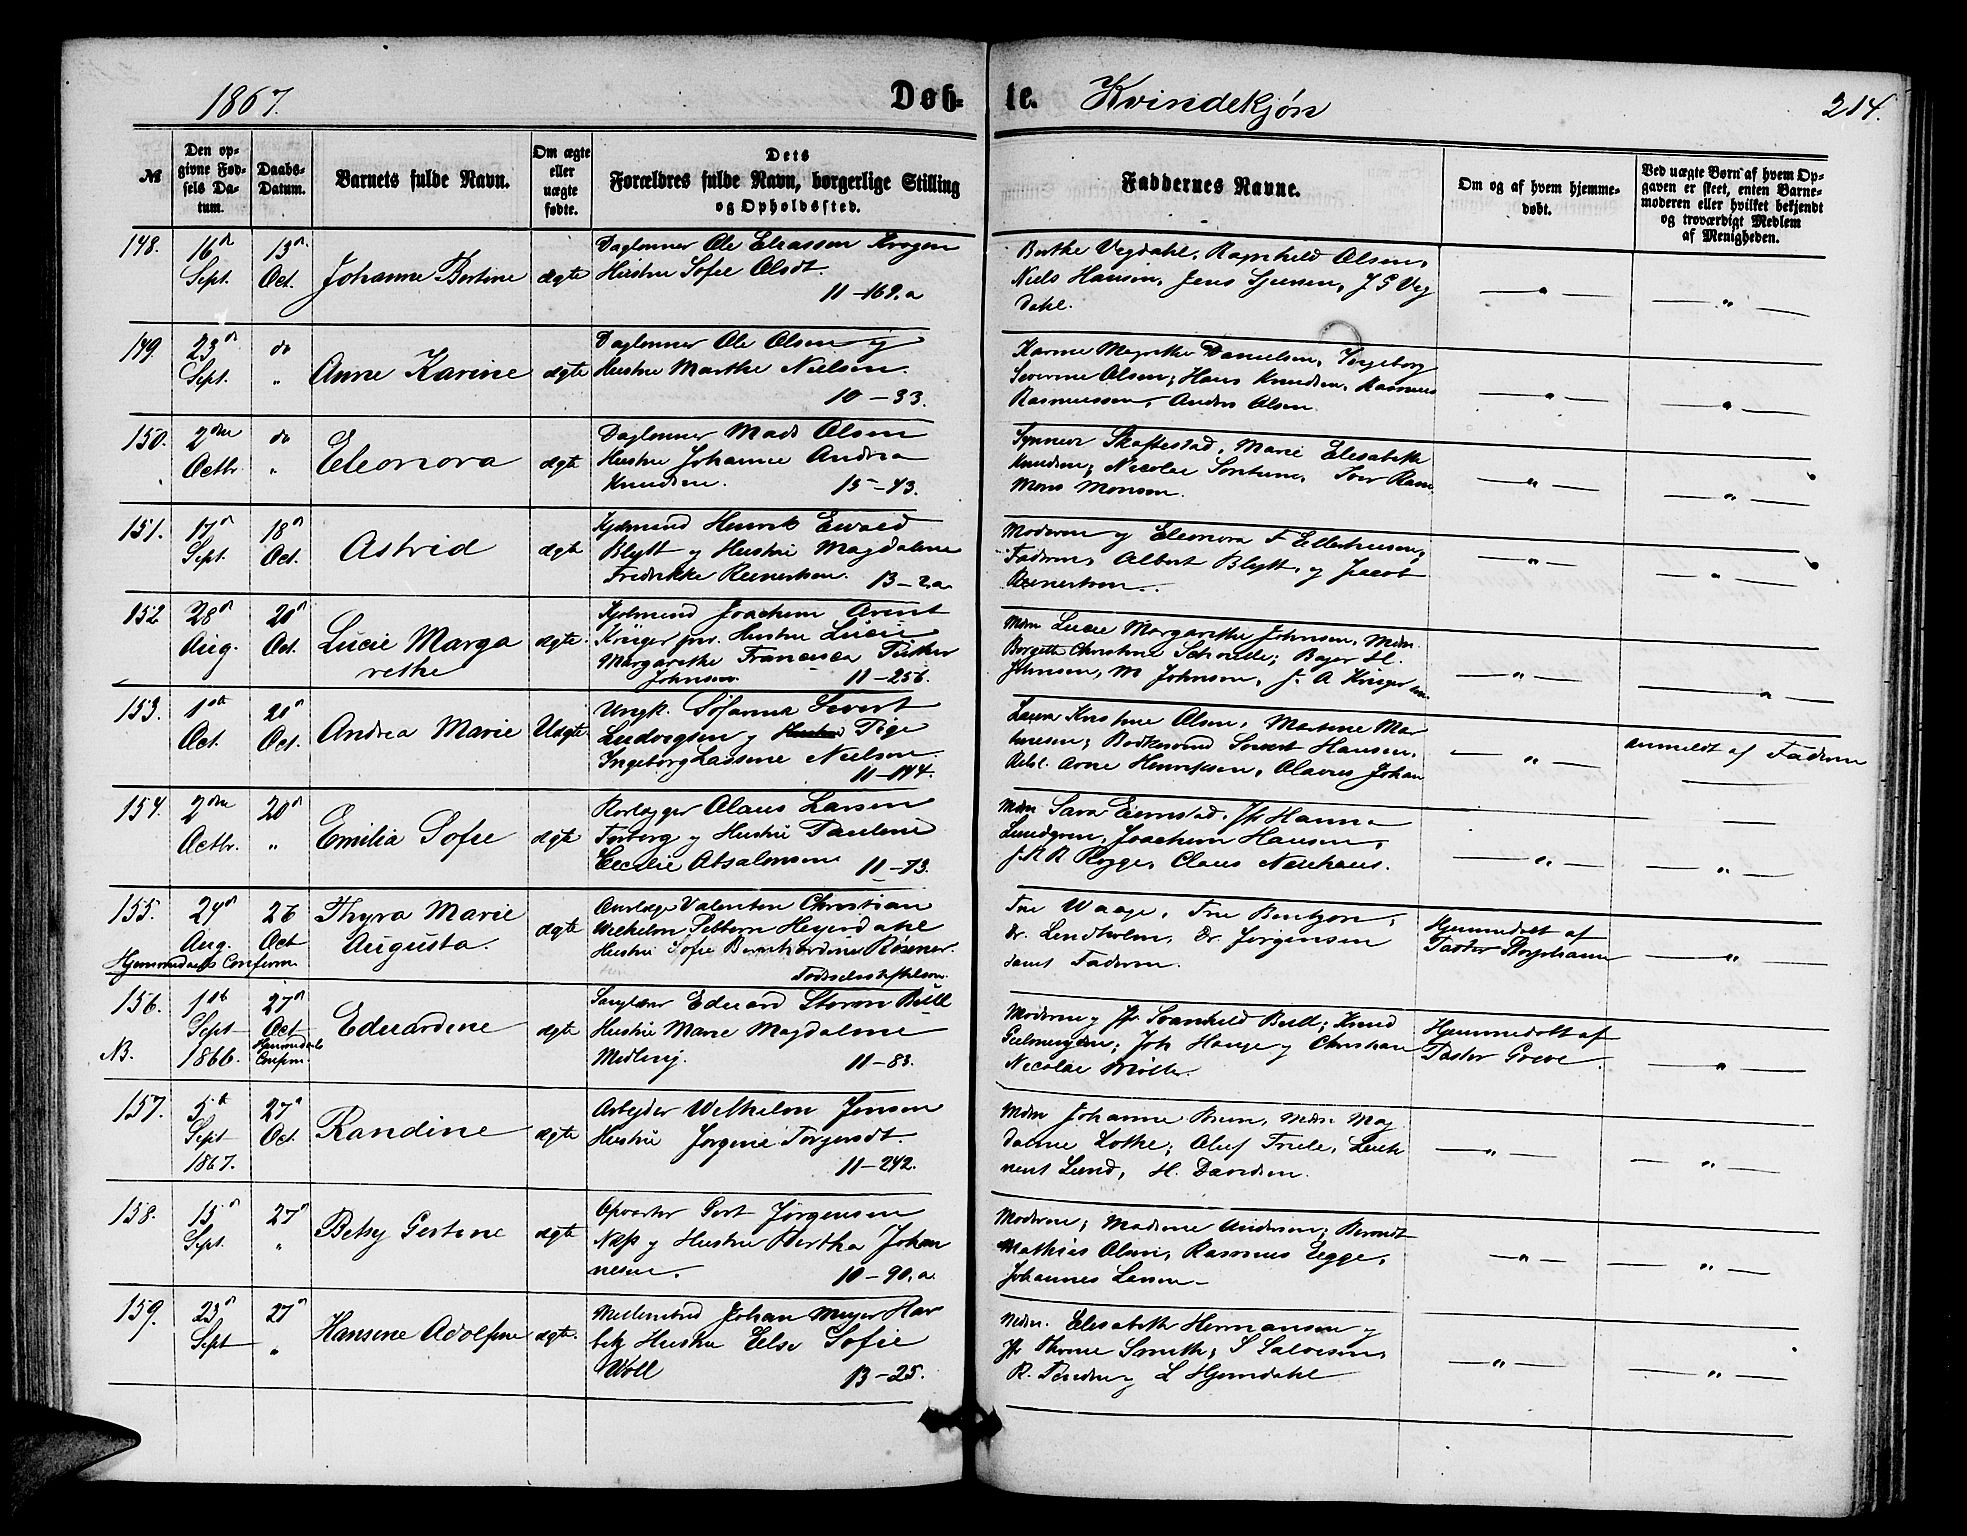 1867.
Døb-
te.
Kvindekjøn
214.
№
Den op-
givne Fød-
sels Da-
tum.
Daabs-
Datum.
Barnets fulde Navn.
Om ægte
eller
uægte
fødte.
Dets
Forældres fulde Navn, borgerlige Stilling
og Opholdssted.
Faddernes Navne.
Om og af hvem hjemme-
døbt.
Ved uægte Børn af hvem Op-
gaven er skeet, enten Barne-
moderen eller hvilket bekjendt
og troværdigt Medlem
af Menigheden.
148.
16de
Sept.
13de
Oct.
Johanne Bertine
ægte
Daglønner Ole Eliassen Krogen
Hustru Sofie Olsdt.
11-169.a
Berthe Vegdahl, Ragnhild Olsen,
Niels Hansen, Jens
Dahl.
149.
23de
Sept.
do
"
Anne Karine
ægte
Daglønner Ole Olsen og
Hustru Marthe Nielsen.
10-33.
Karine Magrethe Danielsen, Ingeborg
Severine Olsen, Hans Knudsen, Rasmus
Rasmussen, Anders Olsen
150.
2den
Octbr.
do
"
Eleonora
ægte
Daglønner Mads Olsen
Hustru Johanne Andrea
Knudsen.
15-43.
Marie Elisabeth
Knudsen, Nicolai
Mons Monsen.
151.
17de
Sept.
18de
Oct.
Astrid
ægte
Kjøbmand Henrik Ewald
Blytt og Hustru Magdalene
Fredrikke Reinertsen. 13-2.a
Moderen og Eleonora F Ellerhusen,
Faderen, Albert Blytt, og Jacob
Reinertsen.
152
28de
Aug.
20de
Oct.
Lucie Marga
rethe
ægte.
Kjøbmand Joachim Arent
Krüger jnr. Hustru Lucie
Margarethe Francisca
Johnsen. 11-256.
Mdm Lucie Margarethe Johnsen, Mdm
Christine
Johnsen, M Johnsen, J. A Krüger
153.
1ste
Oct.
20de
Oct.
Andrea Marie
Uægte.
Ungk. Sivert
Ludvigsen og Pige
Ingeborg Lassene Nielsen
11-144.
Laura Kristine Olsen, Martine Mar
tinesen, Sivert Hansen,
Arne Henriksen, Olavus Johan
anmeldt af Faderen
154.
2den
Octbr.
20de
"
Emilia Sofie
ægte
Rorlægger Olaus Larsen
Forberg og Hustru Pauline
Cecilie Absalonsen 11-73.
Mdm Sara
Lundgren, Joachim Hansen,
Claus Neuhaus.
155.
24de
Aug.
26
Oct
Hjemmedaabs Confirm.
Thyra Marie
Augusta.
ægte
Valentin Christian
Wilhelm Heyerdahl
Hustru Sofie Bernhardine Rosener.
Fødselsstiftelsen
Fru Waage, Fru Bentzon,
Dr. Lindholm, Dr. Jørgensen
samt Faderen.
Hjemmedøbt af
Pastor
156.
NB.
1ste
Sept
1866.
27de
Oct
Hjemmedaab
Confirm
Eduardine
ægte
Eduard Storm Bull
Hustru Marie Magdalene
Medling. 11-83.
Moderen og Jfr Svanhild Bull; Knud
Joh Hauge og Christian
Nicolai Møller.
Hjemmedøbt af
Pastor Greve.
157.
5te
Sept
1867.
27de
Oct.
Randine
ægte
Arbeider Wilhelm Jensen
Hustru Jørgine Torgersdt.
11-242.
Mdm Johanne Bruun, Mdm Mag
dalene Lothe; Oluf Friele, Lieute
nant Lund, H. Davidsen.
158.
15de
Sept.
27de
"
Betsy Gertine
ægte
Opvarter Gert Jørgensen
Næss og Hustru Bertha Johan
nesen. 10-90.a.
Moderen; Madame Andersen; Berendt
Mathias Olsen, Rasmus Egge,
Johannes Larsen
159.
23de
Sept
27de
"
Hansine Adolfine
ægte.
Møllersvend Johan Meyer Har
bitz Hustru Else Sofie
Woll 13-25.
Mdm. Elisabeth Hermansen og
Jfr Thrine Smith, S Salvesen,
L Hjerndahl